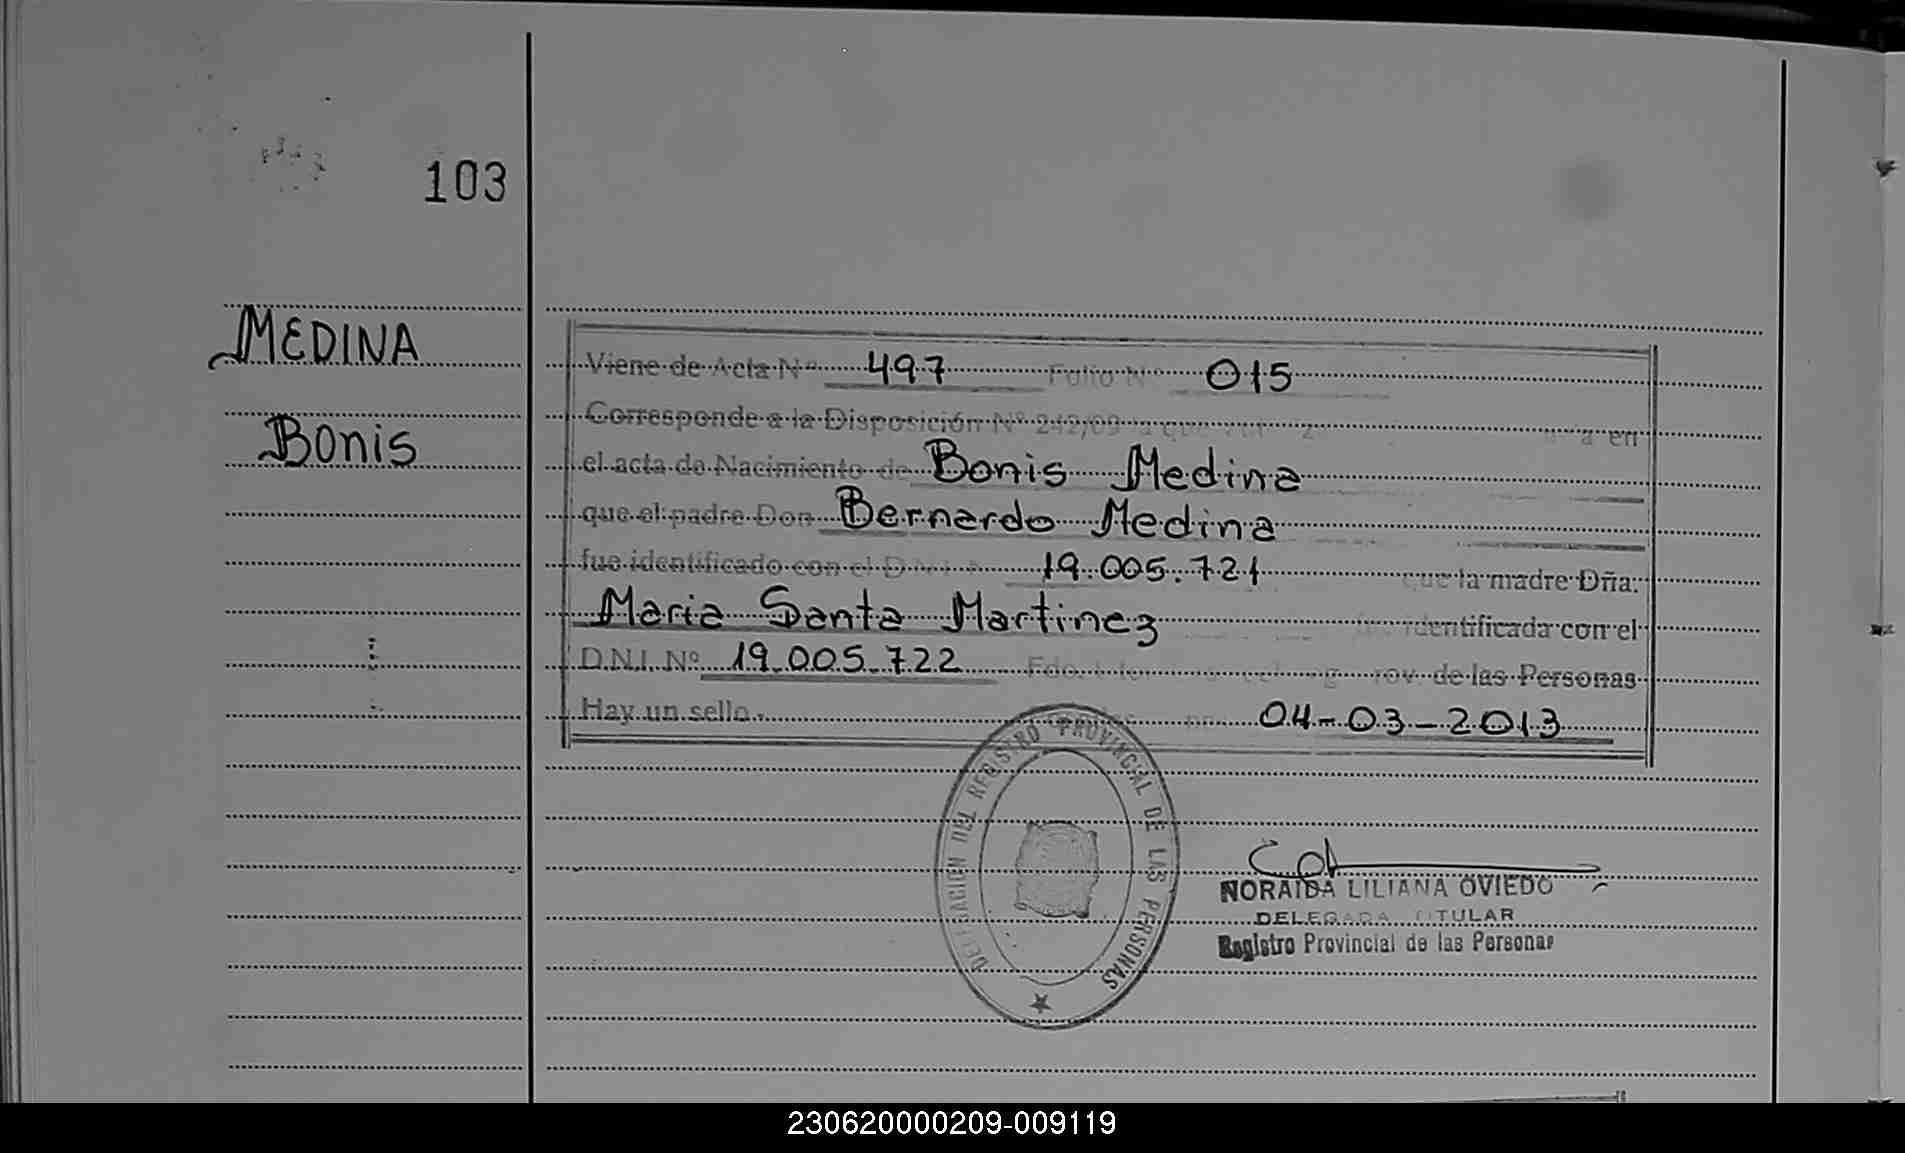 103
MEDINA
Bonis
Viene de Acta Nº 497 Folio Nº 015
Corresponde a la Disposición Nº 242/09
el acta de Nacimiento de Bonis Medina
que el padre Don Bernardo Medina
fue identificado con el 19.005.721 que la madre Dña.
Maria Santa Martinez identificada con el
D.N.I. Nº 19.005.722 de las Personas
Hay un sello.- 04-03-2013
DELEGACION DEL REGISTRO PROVINCIAL DE LAS PERSONAS
NORAIDA LILIANA OVIEDO
DELEGADA TITULAR
Registro Provincial de las Personas
230620000209-009119